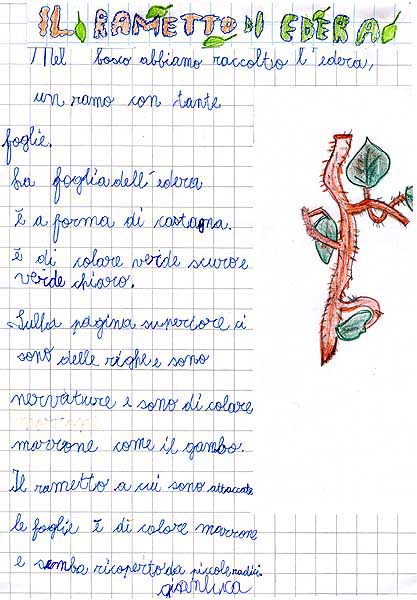 IL RAMETTO DI EDERA
Nel bosco abbiamo raccolto l'edera,
un ramo con tante
foglie.
La foglia dell'edera
è a forma di castagna.
è di colare verde scuro e
verde chiaro.
Sulla pagina superiore ci
sono delle righe e sono
nervature e sono di colare
marrone come il gambo.
Il rametto a cui sono attaccate
le foglie è di colore marrone
e semba ricoperto da piccole radici.
gianluca